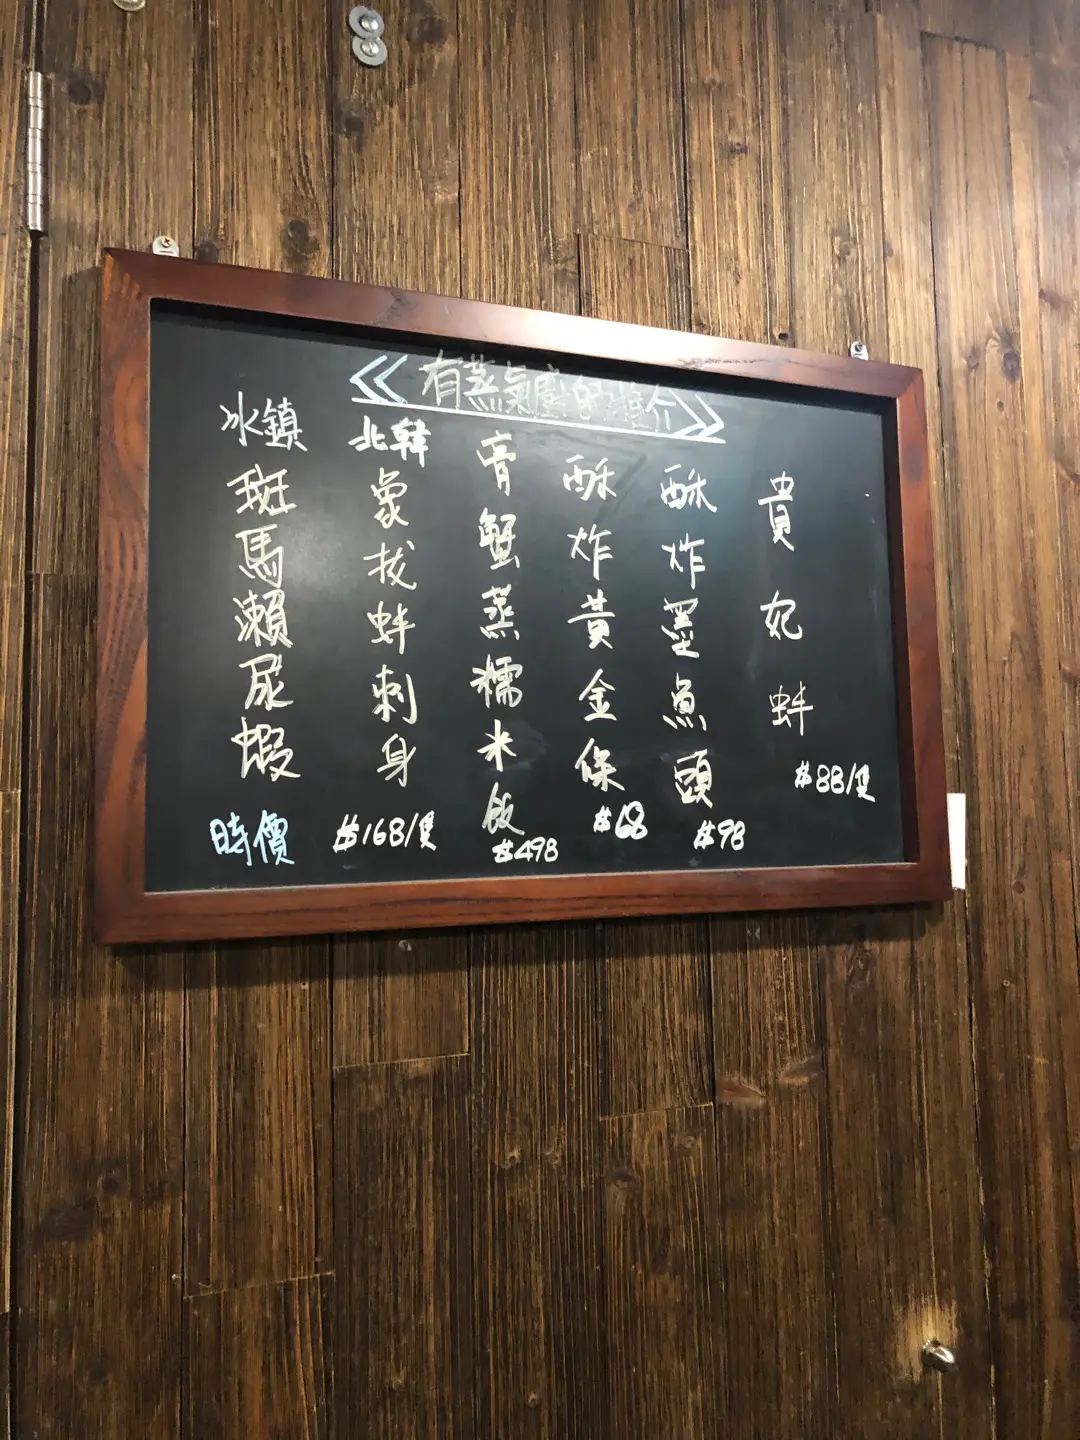 《有蒸氣廚的推介》
貴妃蚌
$88/隻
酥炸墨魚頭
$98
酥炸黃金保
$68
膏蟹蒸糯米飯
$498
北韓
象拔蚌刺身
$168/隻
冰鎮
斑馬瀨尿蝦
時價